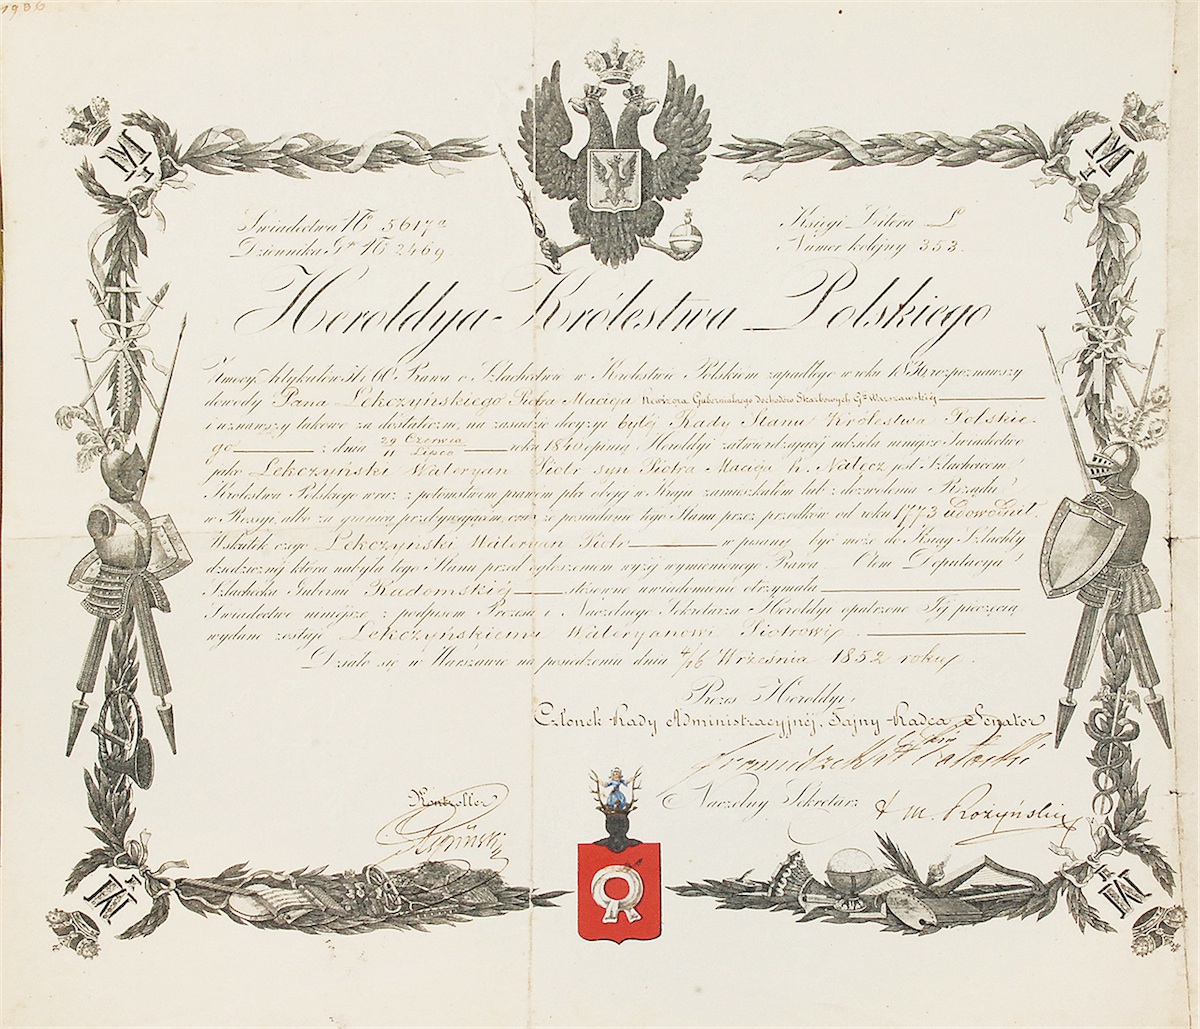 1986
Świadectwa № 5617a
Dziennika Gł. № 2469
Księgi Litera L
Numer kolejny 353.
Heroldya Królestwa Polskiego
Zmocy Artykułów 31 i 60 Prawa o Szlachectwie w Królestwie Polskiem zapadłego w roku 1836, rozpoznawszy
dowody Pana Lekczyńskiego Piotra Macieja Rewizora Gubernialnego dochodów Skarbowych Gii Warszawskiéj
i uznawszy takowe za dostateczne, na zasadzie decyzyi byłéj Rady Stanu Królestwa Polskie-
go ; dnia 29 Czerwca / 11 Lipca roku 1840 opinią Heroldyi zatwierdzającéj udziela niniejsze Świadectwo
jako Lekczyński Waleryan Piotr syn Piotra Macieja h. Nałęcz jest Szlachcicem
Królestwa Polskiego wraz z potomstwem prawem płci obojej w Kraju zamieszkałem lub z dozwolenia Rządu
w Rossyi, albo za granicą przebywającem, oraz że posiadanie tego Stanu przez przodków od roku 1773 udowodnił.
Wskutek czego Lekczyński Waleryan Piotr w pisany być może do Ksiąg Szlachty
dziedzicznéj która nabyła tego Stanu przed ogłoszeniem wyżéj wymienionego Prawa. O tem Deputacya
Szlachecka Gubernii Radomskiéj stosowne uwiadomienie otrzymała
Świadectwo niniejsze z podpisem Prezesa i Naczelnego Sekretarza Heroldyi opatrzone Jéj pieczęcią
wydane zostaje Lekczyńskiemu Waleryanowi Piotrowi.
Działo się w Warszawie na posiedzeniu dnia 4/16 Września 1852 roku.
Prezes Heroldyi,
Członek Rady Administracyjnéj, Tajny Radca, Senator
Naczelny Sekretarz
M. Rożyński
Kontroller